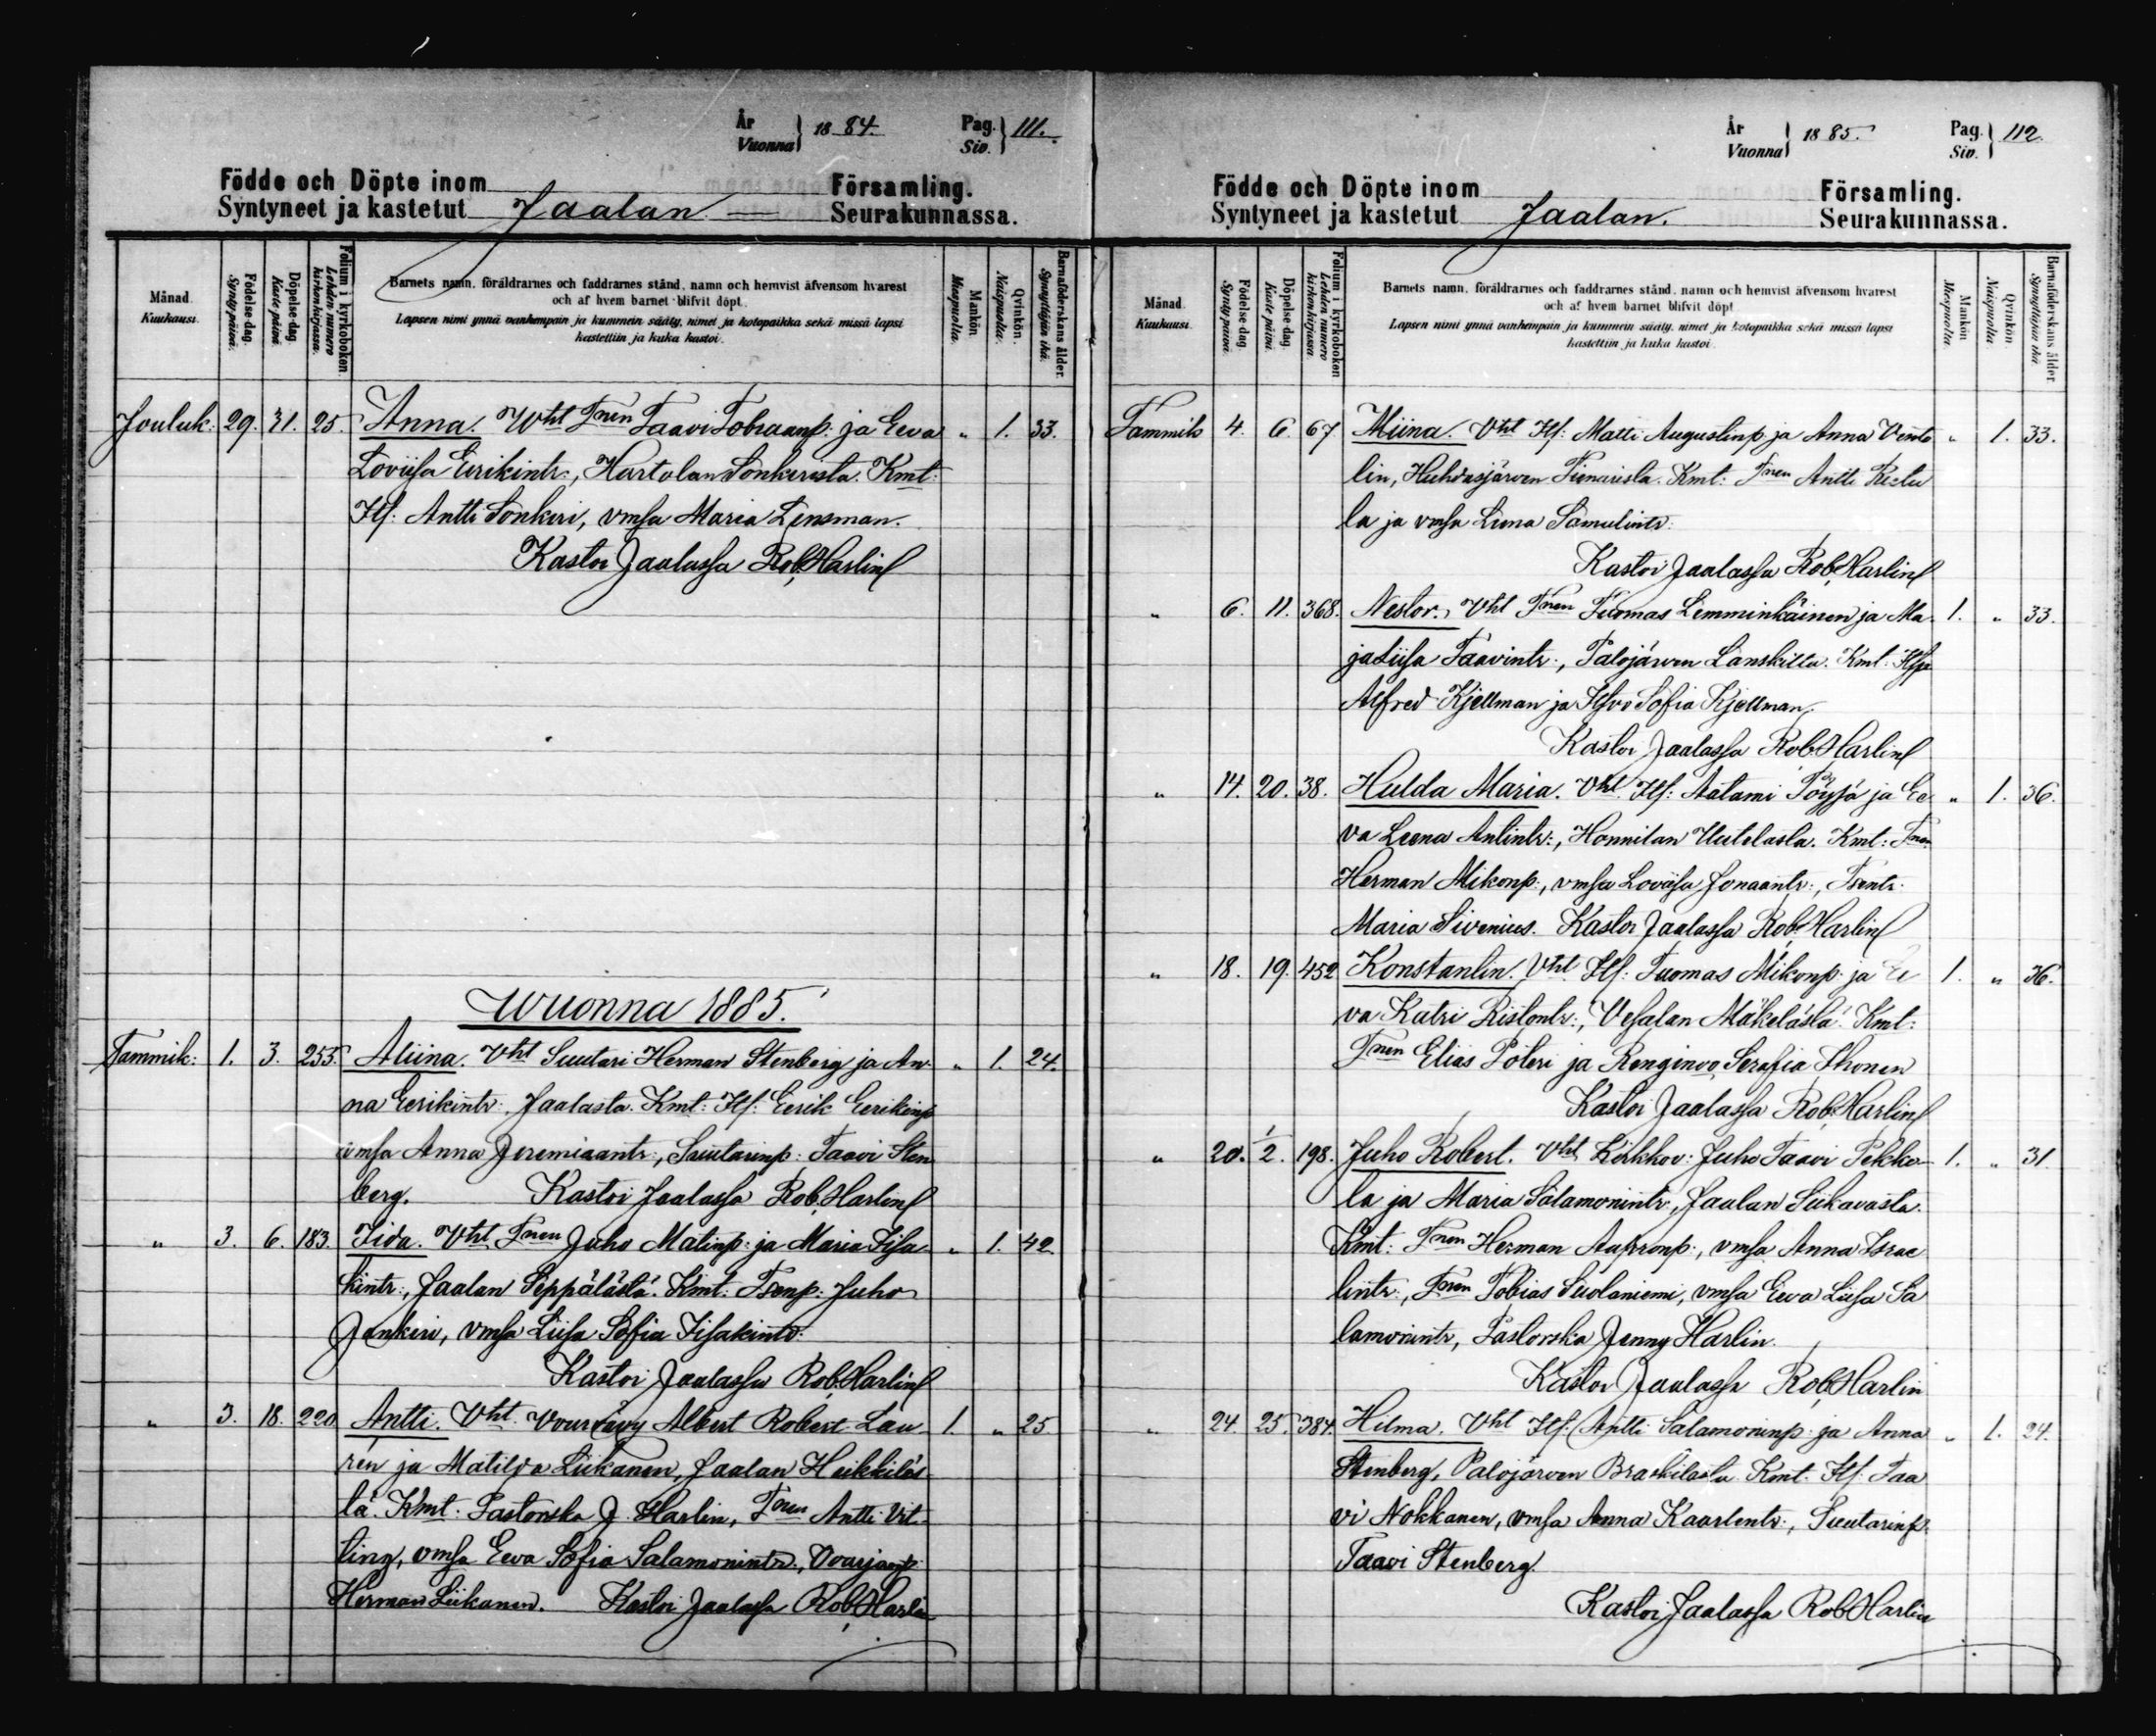 År
Vuonna 1884. Pag.
Siv. 111.
Födde och Döpte inom Församling.
Syntyneet ja kastetut Jaalan Seurakunnassa.
Månad.
Kuukausi.
Födelse-dag.
Synty päivä.
Döpelse-dag
Kaste päivä.
Folium i kyrkoboken
Lehden numero
kirkonkirjassa.
Barnets namn, föräldrarnes och faddrarnes stånd, namn och hemvist äfvensom hvarest
och af hvem barnet blifvit döpt.
Lapsen nimi ynnä vanhempain ja kummein sääty, nimet ja kotopaikka sekä missä lapsi
kastettiin ja kuka kastoi.
Mankön
Miespuolta.
Qvinkön.
Naispuolta.
Barnaföderskans ålder.
Synnyttäjän ikä.
Jouluk: 29. 31. 25. Anna. Vht Tnen Taavi Tobiaanp: ja Eeva „ 1. 33.
Lovisa Eerikintr:, Hartolan Sonkerista. Kmt:
Its: Antti Sonkeri, vmsa Maria Lensman.
Kastoi Jaalassa Rob. Harlin
Wuonna 1885.
Tammik: 1. 3. 255. Aliina. Vht Suutari Herman Stenberg ja An- „ 1. 24.
na Eerikintr: Jaalasta. Kmt: Its: Eerik Eerikinp
vmsa Anna Jeremiaantr:, Suutarinp: Taavi Sten
berg. Kastoi Jaalassa Rob. Harlin
„ 3. 6. 183. Iida. Vht Tnen Juho Matinp: ja Maria Iisa- „ 1. 42
kintr:, Jaalan Seppälästä. Kmt: Tsenp: Juho
Jankeri, vmsa Liisa Sofia Iisakintr:
Kastoi Jaalassa Rob. Harlin
„ 3. 18. 220 Antti. Vht. Albert Robert Lau- 1. „ 25.
rén ja Matilda Liikanen, Jaalan Heikkiläs-
tä. Kmt: Pastorska J. Harlin, Tnen Antti Vit-
ting, vmsa Eeva Sofia Salamonintr:,
Herman Liikanen. Kastoi Jaalassa Rob. Harlin
År
Vuonna 1885. Pag.
Siv. 112.
Födde och Döpte inom Församling.
Syntyneet ja kastetut Jaalan. Seurakunnassa.
Månad.
Kuukausi.
Födelse-dag.
Synty päivä.
Döpelse-dag.
Kaste päivä.
Folium i kyrkoboken
Lehden numero
kirkonkirjassa.
Barnets namn, föräldrarnes och faddrarnes stånd, namn och hemvist äfvensom hvarest
och af hvem barnet blifvit döpt
Lapsen nimi ynnä vanhempain ja kummein sääty, nimet ja kotopaikka sekä missä lapsi
kastettiin ja kuka kastoi.
Mankön
Miespuolta.
Qvinkön.
Naispuolta
Barnaföderskans ålder.
Synnyttäjän ikä.
Tammik 4. 6. 67 Miina. Vht Its: Matti Augustinp. ja Anna Vento „ 1. 33.
lin, Huhdasjärven Kmt: Tnen Antti Ketu
la ja vmsa Liina Samulintr:
Kastoi Jaalassa Rob. Harlin
„ 6. 11. 368. Nestor. Vht Tnen Tuomas Lemminkäinen ja Ma- 1. „ 33.
ja Liisa Taavintr:, Palojärven Kmt:
Alfred Kjellman ja Sofia Kjellman.
Kastoi Jaalassa Rob. Harlin
„ 14. 20. 38. Hulda Maria. Vht Its: Aatami Pöysä ja Ee „ 1. 36.
va Leena Antintr:, Honnilan Uutelasta. Kmt: Tnen
Herman Mikonp:, vmsa Lovisa Jonaantr:, Tsentr:
Maria Sivenius. Kastoi Jaalassa Rob. Harlin
„ 18. 19. 452 Konstantin. Vht. Its: Tuomas Mikonp: ja Ee 1. „ 36.
va Katri Ristontr:, Vesalan Mäkelästä. Kmt:
Tnen Elias Pöteri ja Renginvo Serafia Ihonen
Kastoi Jaalassa Rob. Harlin
„ 20. 1/2. 198. Juho Robert. Vht Kirkkov: Juho Taavi Pekko- 1. „ 31
la ja Maria Salamonintr:, Jaalan
Kmt: Tnen Herman Aapronp:, vmsa Anna Israe
lintr:, Tnen Tobias Suolaniemi, vmsa Eeva Liisa Sa
lamonintr, Pastorska Jenny Harlin.
Kastoi Jaalassa Rob. Harlin
„ 24. 25. 384. Hilma. Vht Its: Antti Salamoninp: ja Anna „ 1. 24.
Stenberg, Palojärven Kmt: Its: Taa
vi Nokkanen, vmsa Anna Kaarlentr:, Suutarinp.
Taavi Stenberg.
Kastoi Jaalassa Rob. Harlin